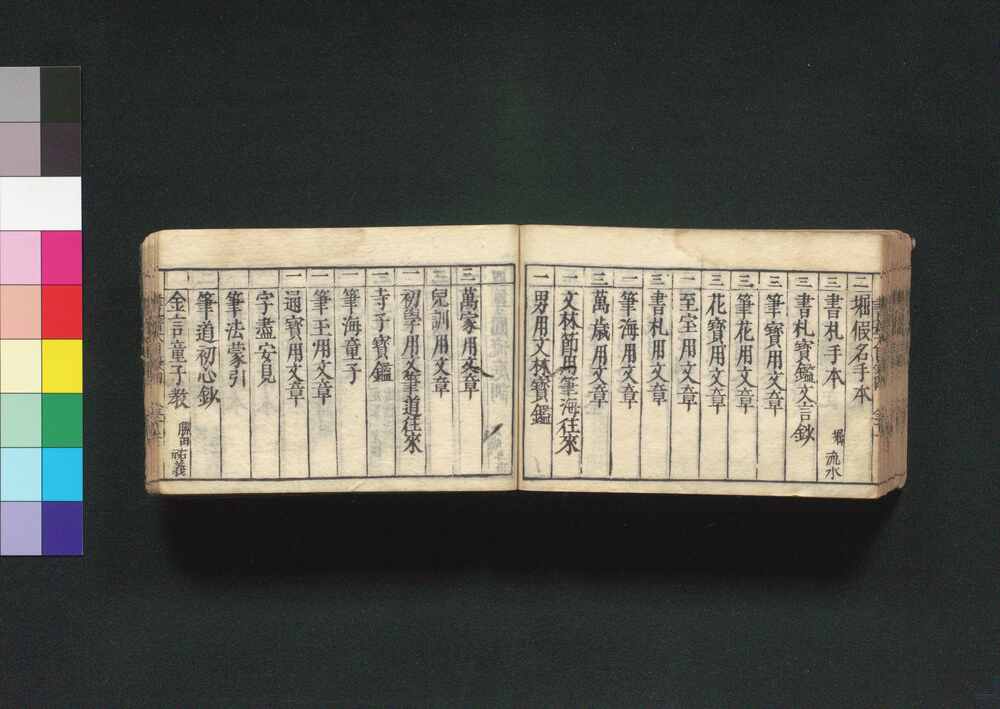 二 堀假名手本
三 書札手本 堀流水
三 書札寳鑑文言鈔
三 筆寳用文章
三 筆花用文章
三 花寳用文章
二 至宝用文章
三 書札用文章
一 筆海用文章
三 萬歳用文章
二 文林節用筆海往來
一 男用文林寳鑑
三 萬家用文章
三 兒訓用文章
一 初學用文筆道往來
一 寺子寳鑑
一 筆海童子
一 筆王用文章
一 通寳用文章
字盡安見
筆法蒙引
筆道初心鈔
金言童子教 勝田祐義